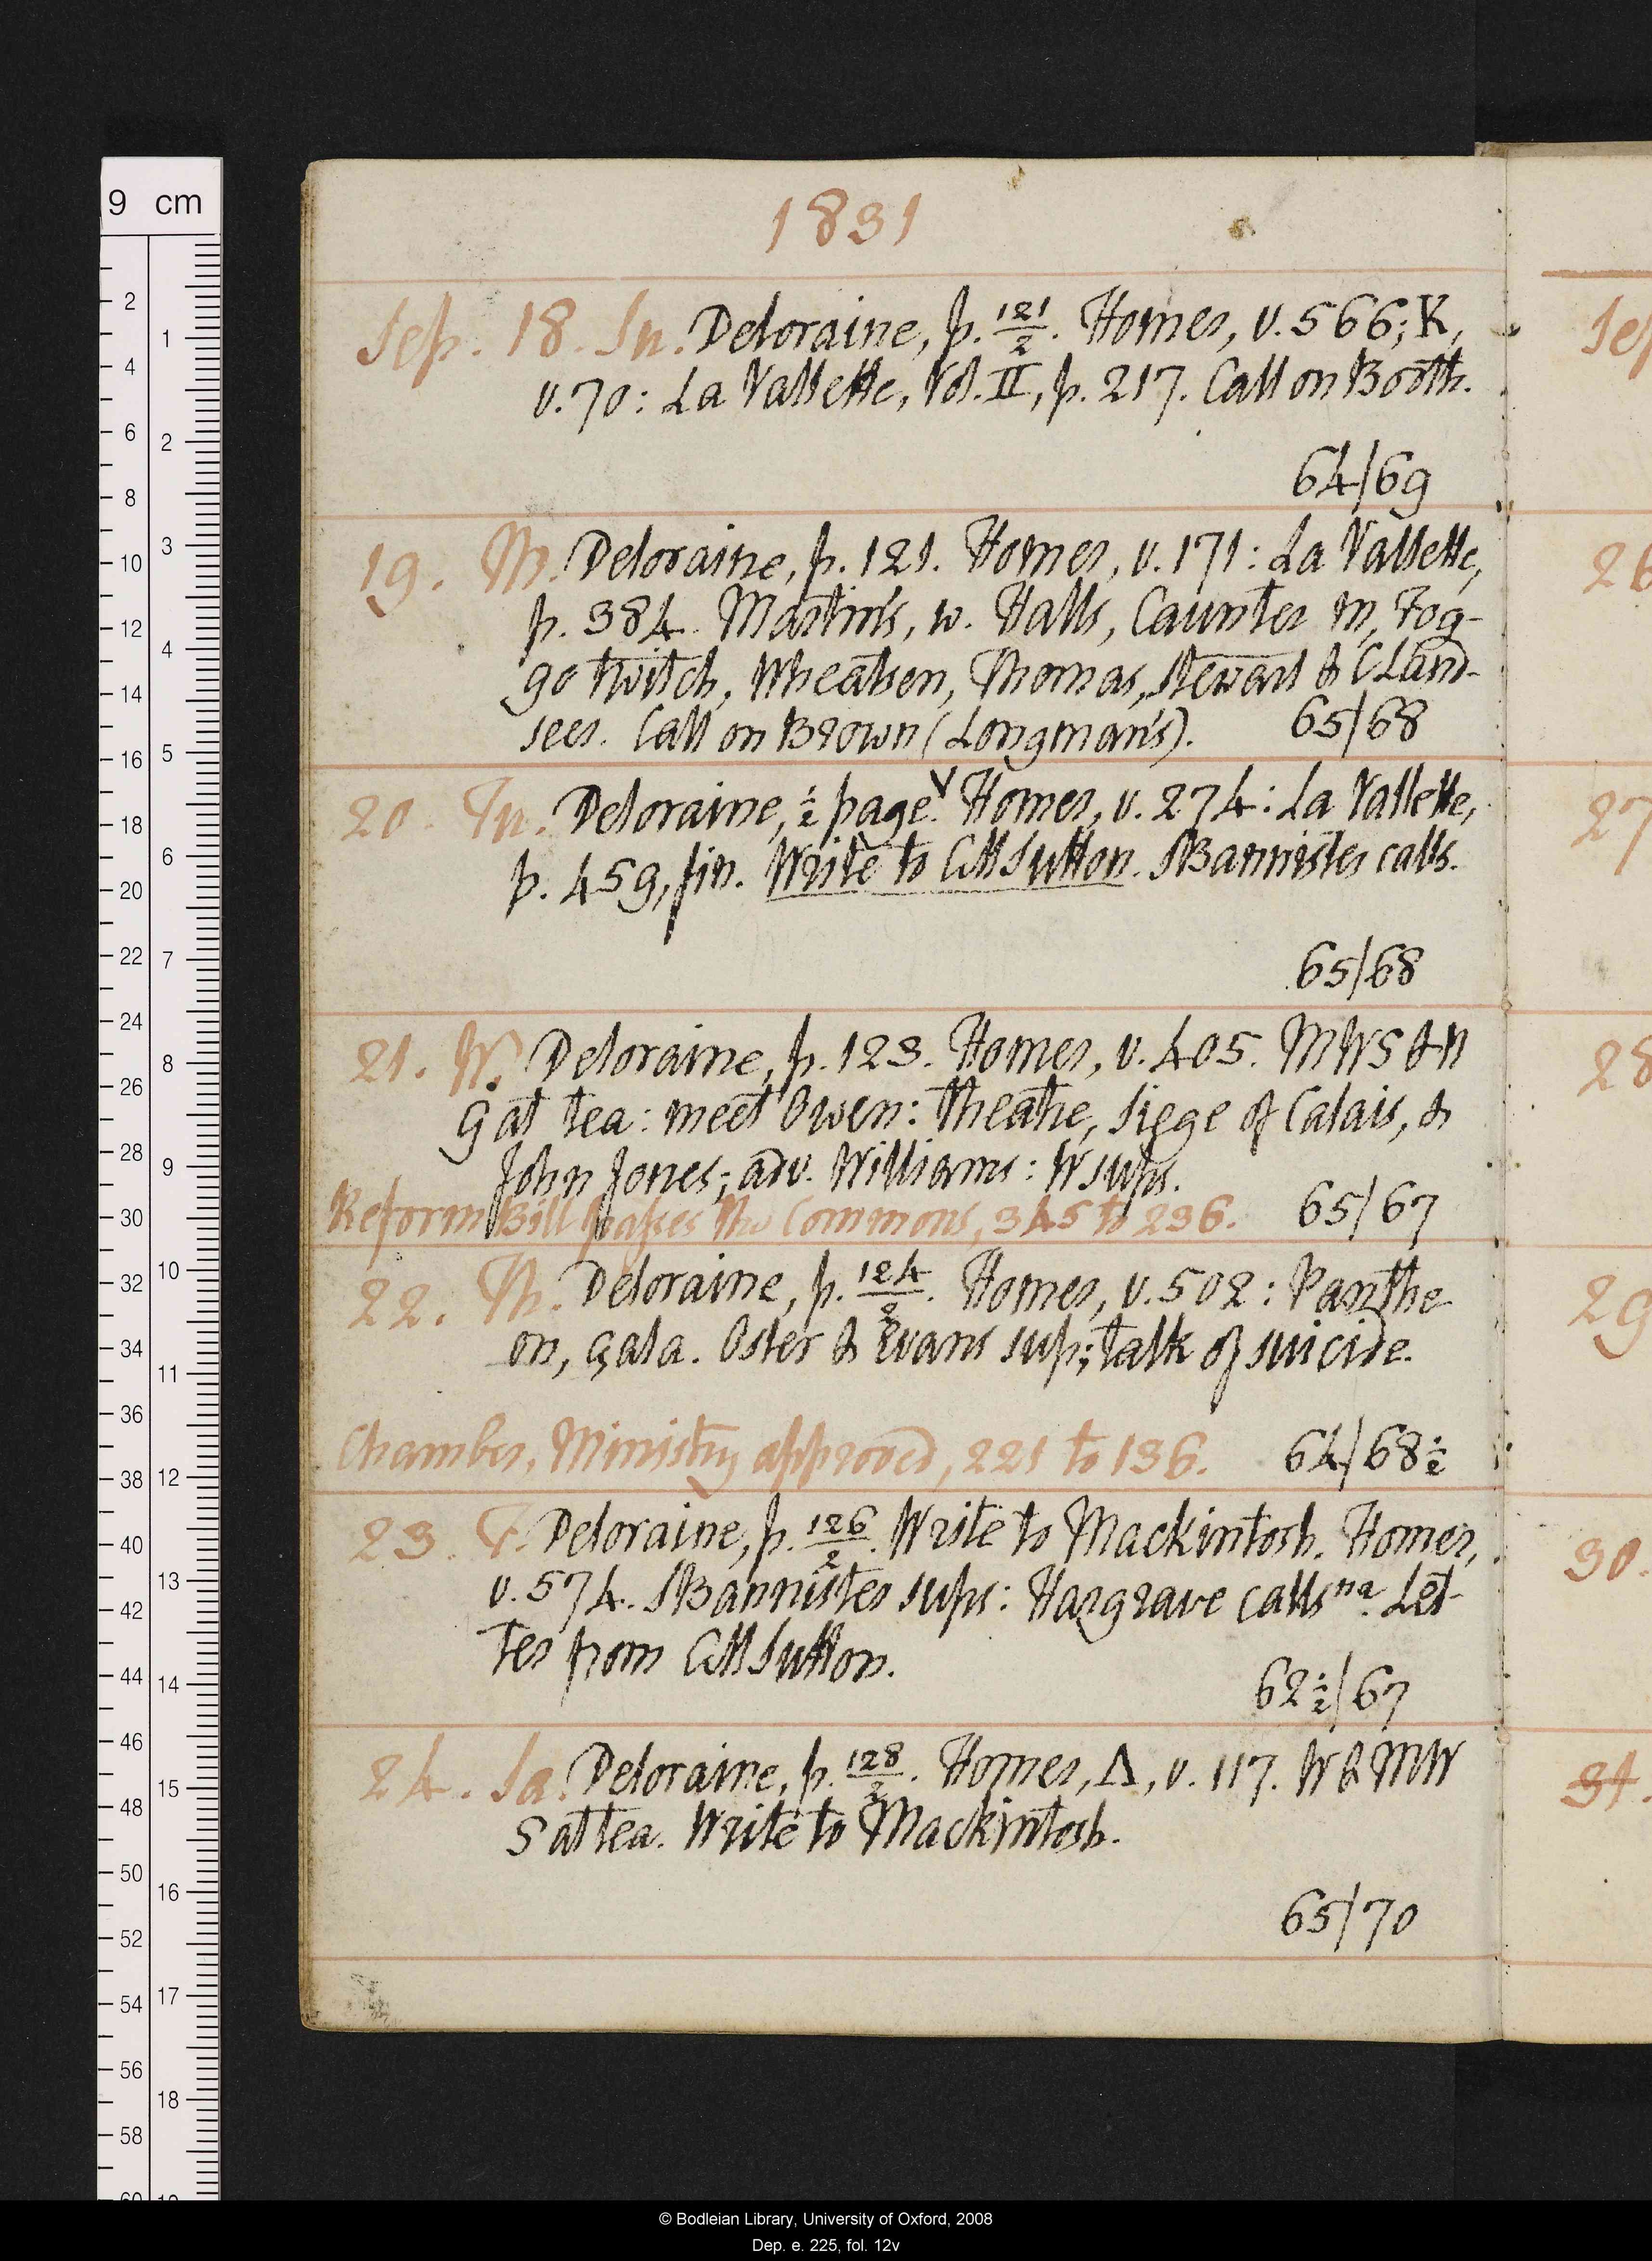 1831
Sep. 18. Su. Deloraine, p. 121/2. Homer, v. 566; K,
v. 70: La Vallette, Vol. II, p. 217. Call on Booth.
64/69
19. M. Deloraine, p. 121. Homer, v. 171: La Vallette,
p. 384. Martin's, w. Halls, Caunter m, Fog-
go twitch, Wheatson, Thomas, Stewart & C Land-
seer. Call on Brown (Longman's). 65/68
20. Tu. Deloraine, ½ page. Homer, v. 274: La Vallette,
p. 459, fin. Write to CMSutton. SBannister calls.
65/68
21. W. Deloraine, p. 123. Homer, v. 405. MWS & H
G at tea: meet Owen: theatre, Siege of Calais, &
John Jones; adv. Williams: W sups.
Reform Bill passes the Commons, 345 to 236. 65/67
22. Th. Deloraine, p. 124/2. Homer, v. 502: Panthe
on, gala. Osler & Evans sup; talk of suicide.
Chamber, Ministry approved, 221 to 136. 64/68½
23. F. Deloraine, p. 126/2. Write to Mackintosh. Homer,
v. 574. SBannister sups: Hargrave calls na. Let-
ter from CMSutton.
62½/67
24. Sa. Deloraine, p. 128/2. Homer, Λ, v. 117. W & MW
S at tea. Write to Mackintosh.
65/70
Sep
26
27
28
29
30.
31.
9 cm
© Bodleian Library, University of Oxford, 2008
Dep. e. 225, fol. 12v